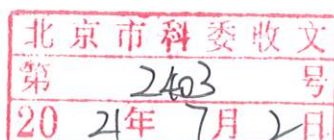 北京市科委收文
第2403号
2021年7月2日